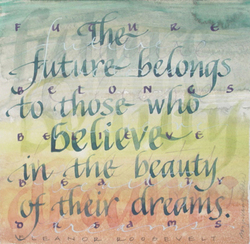 FUTURE
The
future belongs
BELONGS
to those who
BELIEVE
believe
in the beauty
BEAUTY
of their dreams.
DREAMS
ELEANOR ROOSEVELT